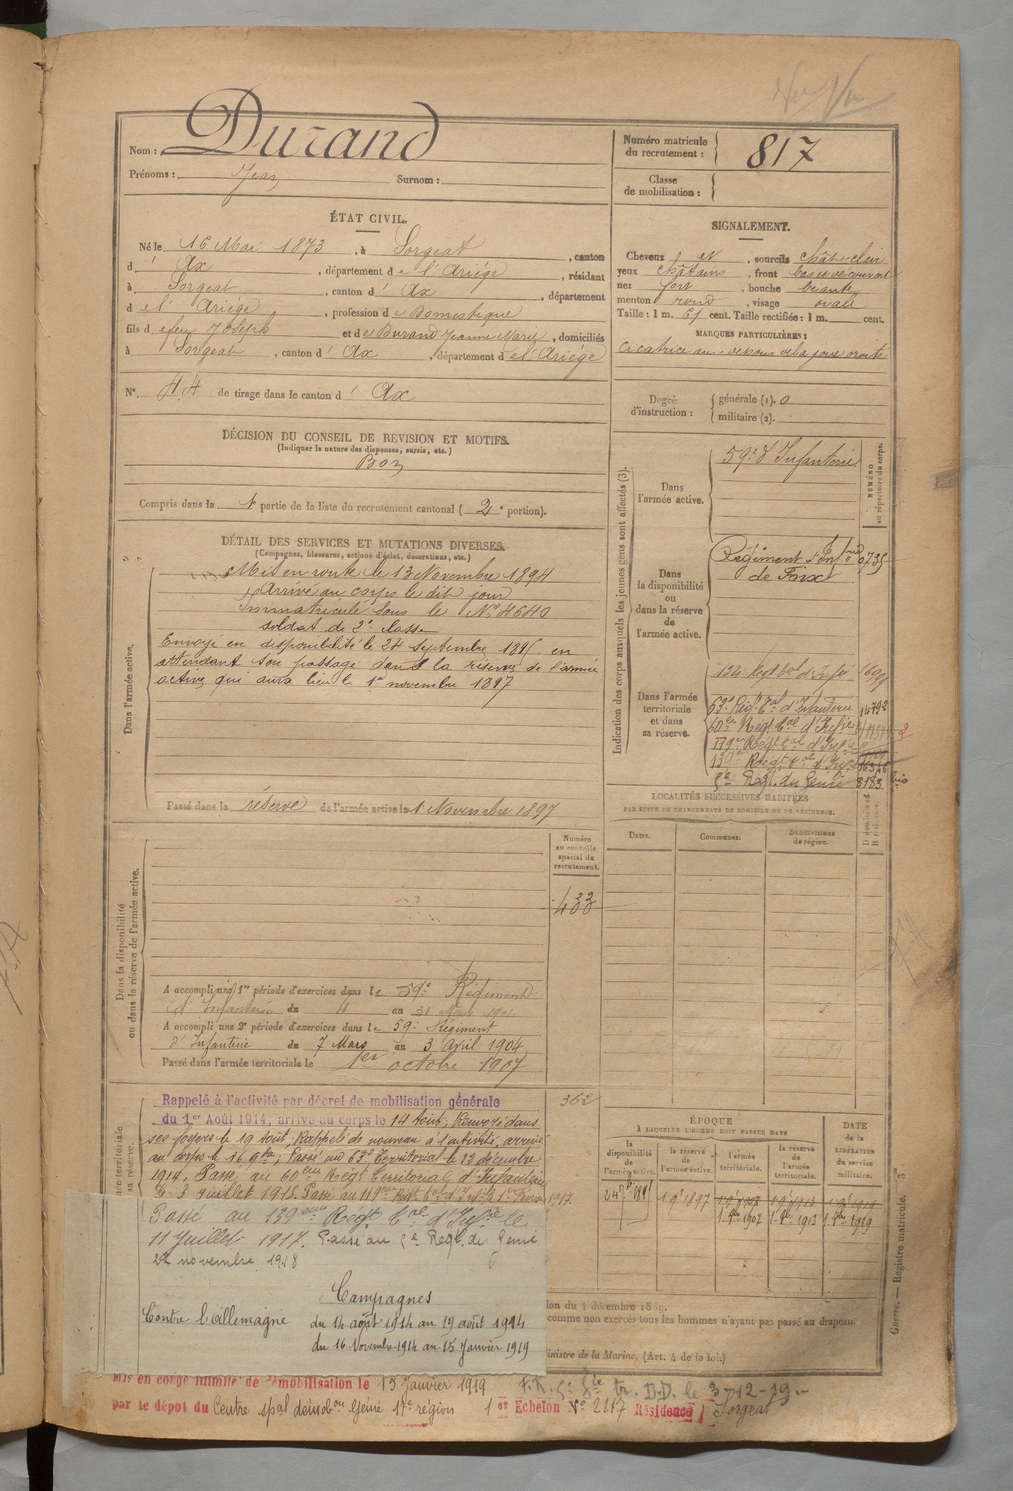 Nom : Durand
Prénoms : Jean Surnom :
Numéro matricule du recrutement : 817
Classe de mobilisation :
ÉTAT CIVIL.
Né le 16 Mai 1873, à Sorgeat, canton
d' Ax, département de l'Ariège, résidant
à Sorgeat, canton d' Ax, département
de l'Ariège, profession de Domestique
fils d efeu Joseph et de Durand Jeanne Marie, domiciliés
à Sorgeat, canton d' Ax, département de l'Ariège
N° 44 de tirage dans le canton d' Ax
SIGNALEMENT.
Cheveux et, sourcils chât-clair
yeux châtains, front bas et découvert
nez fort, bouche béante
menton rond, visage ovale
Taille : 1 m. 61 cent. Taille rectifiée : 1 m. cent.
MARQUES PARTICULIÈRES :
Cicatrice au-dessous de la joue droite
Degré d'instruction : générale (1). 0
militaire (2).
DÉCISION DU CONSEIL DE REVISION ET MOTIFS.
(Indiquer la nature des dispenses, sursis, etc.)
Bon
Compris dans la 1e partie de la liste du recrutement cantonal ( 2e portion).
DÉTAIL DES SERVICES ET MUTATIONS DIVERSES.
(Campagnes, blessures, actions d'éclat, décorations, etc.)
Dans l'armée active.
Mis en route le 13 Novembre 1894
Arrivé au corps le dit jour
Immatriculé sous le N° 4640
soldat de 2e classe
Envoyé en disponibilité le 24 septembre en
attendant son passage dans la réserve de l'armée
active qui aura lieu le 1er novembre 1897
Passé dans la réserve de l'armée active le 1 Novembre 1897
Indication des corps auxquels les jeunes gens sont affectés (3).
Dans l'armée active.
59e d'Infanterie
NUMÉRO au répertoire du corps.
Dans la disponibilité ou dans la réserve de l'armée active.
Régiment d'Infrie 0735
de Foix
Dans l'armée territoriale et dans sa réserve.
134e Regt tal d'Infie
63e Régt tal d'Infanterie 14792
60e Régt tal d'Infie
119e Régt tal d'Infie
139e Régt tal d'Infie
Regt du Génie 8183 bis
LOCALITÉS SUCCESSIVES HABITÉES
PAR SUITE DE CHANGEMENTS DE DOMICILE OU DE RÉSIDENCE.
Dates. Communes. Subdivisions de région.
Numéro au contrôle spécial du recrutement.
433
Dans la disponibilité ou dans la réserve de l'armée active.
A accompli une 1re période d'exercices dans le 59e Régiment
d'Infanterie du 4 au 31
A accompli une 2e période d'exercices dans le 59e Régiment
d'Infanterie du 7 Mars au 3 Avril 1904
Passé dans l'armée territoriale le 1er octobre 1907
362
Rappelé à l'activité par décret de mobilisation générale
du 1er Août 1914, arrivé au corps le 14 Août, Renvoyé dans
ses foyers le 19 Août, Rappelé de nouveau à l'activité, arrivé
au corps le 16 9bre, Passé au 63e Territorial le 12 décembre
1914. Passé au 60ème Régt Territorial d'Infanterie
le 3 Juillet Passé au 119ème Régt tal d'Infie le 1er 1917.
Passé au 139ème Régt tal d'Infie le
11 Juillet 1917. Passé au Regt de Génie
22 novembre 1918
Campagnes
Contre l'Allemagne du 14 août 1914 au 19 août 1914
du 16 Novembre 1914 au 15 Janvier 1919
ÉPOQUE
À LAQUELLE L'HOMME DOIT PASSER DANS
la disponibilité de l'armée active.
la réserve de l'armée active.
l'armée territoriale.
la réserve de l'armée territoriale.
DATE de la LIBÉRATION du service militaire.
1 9e 1897
1 8re 1907 1 8re 1913 1 8re 1919
comme non exercés tous les hommes n'ayant pas passé au drapeau.
Ministre de la Marine. (Art. 4 de la loi.)
Guerre. — Registre matricule. 3
Mis en congé illimité de démobilisation le 15 Janvier 1919
par le dépôt du Centre spal démobon Génie 17e région 1er Echelon N° 2117 Résidence Sorgeat